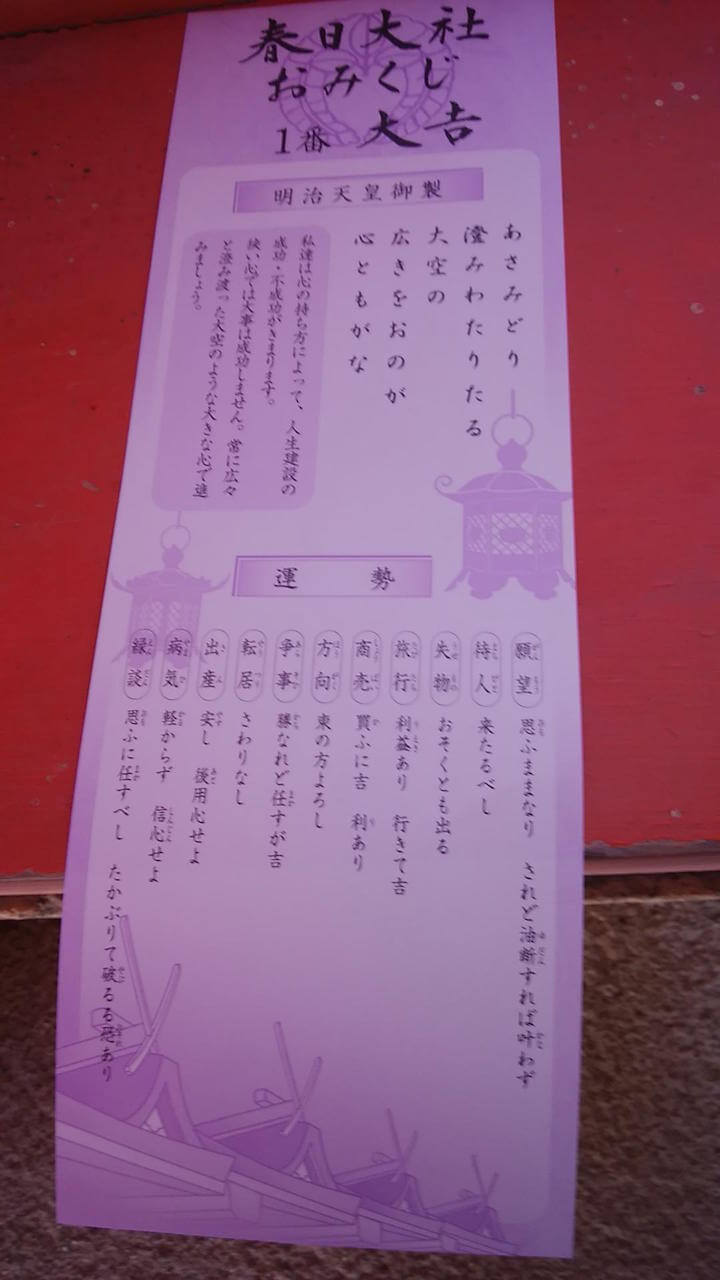 春日大社
おみくじ
1番 大吉
明治天皇御製
あさみどり
澄みわたりたる
大空の
広きをおのが
心ともがな
私達は心の持ち方によって、人生建設の
成功・不成功がきまります。
狭い心では大事は成功しません。常に広々
と澄み渡った大空のような大きな心で進
みましょう。
運勢
願望 思ふままなり されど油断すれば叶わず
待人 来たるべし
失物 おそくとも出る
旅行 利益あり 行きて吉
商売 買ふに吉 利あり
方向 東の方よろし
争事 勝なれど任すが吉
転居 さわりなし
出産 安し 後用心せよ
病気 軽からず 信心せよ
縁談 思ふに任すべし たかぶりて破るる恐あり